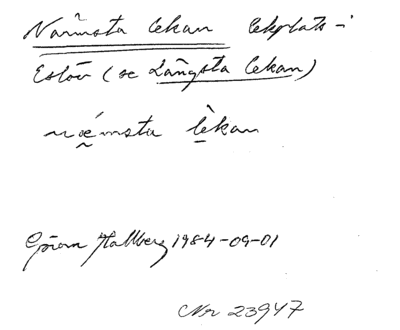 Närmsta lekan lekplats i
Eslöv (se Längsta lekan)
nǽrmsta lèkan
Göran Hallberg 1984-09-01
Nr 23947